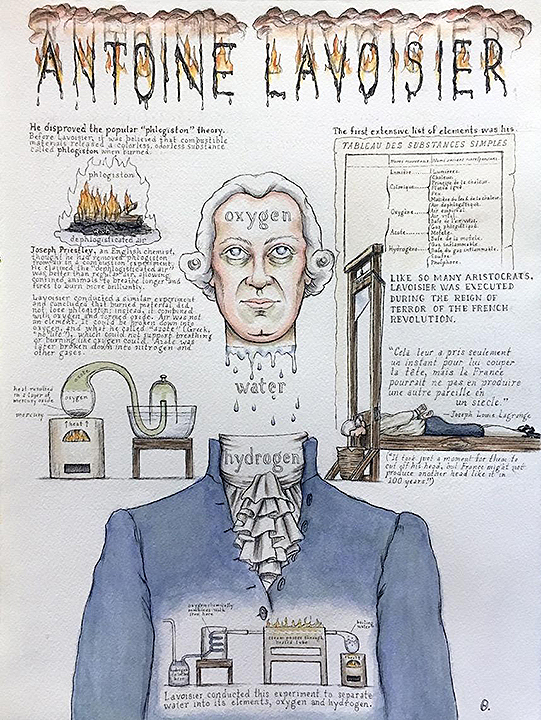 ANTOINE LAVOISIER
He disproved the popular "phlogiston" theory.
Before Lavoisier, it was believed that combustible
materials released a colorless, odorless substance
called phlogiston when burned.
phlogiston
dephlogisticated air
Joseph Priestley, an English chemist,
thought he had removed phlogiston
from air in a combustion experiment.
He claimed the "dephlogisticated air"
was better than regular air, allowing
confined animals to breathe longer and
fires to burn more brilliantly.
Lavoisier conducted a similar experiment
and concluded that burned material did
not lose phlogiston; instead, it combined
with oxygen, and formed oxide. Air was not
an element; it could be broken down into
oxygen, and what he called "azote" (Greek,
"no life"), which could not support breathing
or burning like oxygen could. Azote was
later broken down into nitrogen and
other gases.
heat resulted
in a layer of
mercury oxide
mercury
oxygen
heat
oxygen
water
hydrogen
The first extensive list of elements was his.
TABLEAU DES SUBSTANCES SIMPLES
Noms nouveaux
Lumière
Calorique
Oxygène
Azote
Hydrogène
LIKE SO MANY ARISTOCRATS,
LAVOISIER WAS EXECUTED
DURING THE REIGN OF
TERROR OF THE FRENCH
REVOLUTION.
"Cela leur a pris seulement
un instant pour lui couper
la tête, mais la France
pourrait ne pas en produire
une autre pareille en
un siècle."
—Joseph Louis Lagrange
("It took just a moment for them to
cut off his head, but France might not
produce another head like it in
100 years.")
oxygen chemically
combines with
iron here
steam passes through
boiling
water
Lavoisier conducted this experiment to separate
water into its elements, oxygen and hydrogen.